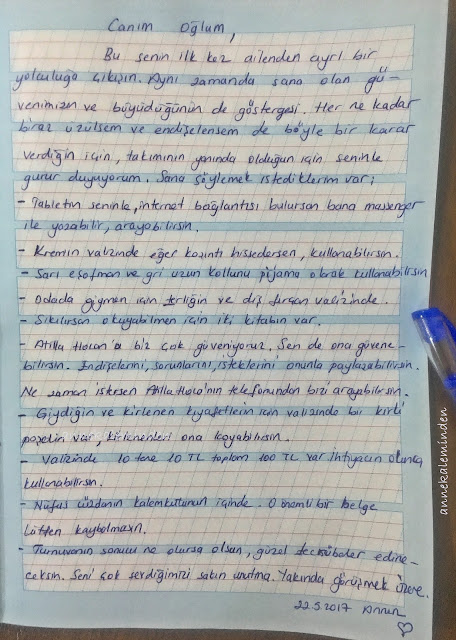 Canım Oğlum,
Bu senin ilk kez ailenden ayrı bir
yolculuğa çıkışın. Aynı zamanda sana olan gü-
venimizin ve büyüdüğünün de göstergesi. Her ne kadar
biraz üzülsem ve endişelensem de böyle bir karar
verdiğin için, takımının yanında olduğun için seninle
gurur duyuyorum. Sana söylemek istediklerim var;
- Tabletin seninle, internet bağlantısı bulursan bana massenger
ile yazabilir, arayabilirsin.
- Kremin valizinde eğer kaşıntı hissedersen, kullanabilirsin.
- Sarı eşofman ve gri uzun kollunu pijama olarak kullanabilirsin
- Odada giymen için terliğin ve diş fırçan valizinde.
- Sıkılırsan okuyabilmen için iki kitabın var.
- Atilla Hocan'a biz çok güveniyoruz. Sen de ona güvene-
bilirsin. Endişelerini, sorunlarını, isteklerini onunla paylaşabilirsin.
Ne zaman istersen Atilla Hoca'nın telefonundan bizi arayabilirsin.
- Giydiğin ve kirlenen kıyafetlerin için valizinde bir kirli
poşetin var, kirlenenleri ona koyabilirsin.
- Valizinde 10 tane 10 TL toplam 100 TL var ihtiyacın olunca
kullanabilirsin.
- Nüfus cüzdanın kalemkutunun içinde. O önemli bir belge
Lütfen kaybolmasın.
- Turnuvanın sonucu ne olursa olsun, güzel tecrübeler edine-
ceksin. Seni çok sevdiğimizi sakın unutma. Yakında görüşmek üzere.
22.5.2017 Annen
annekaleminden